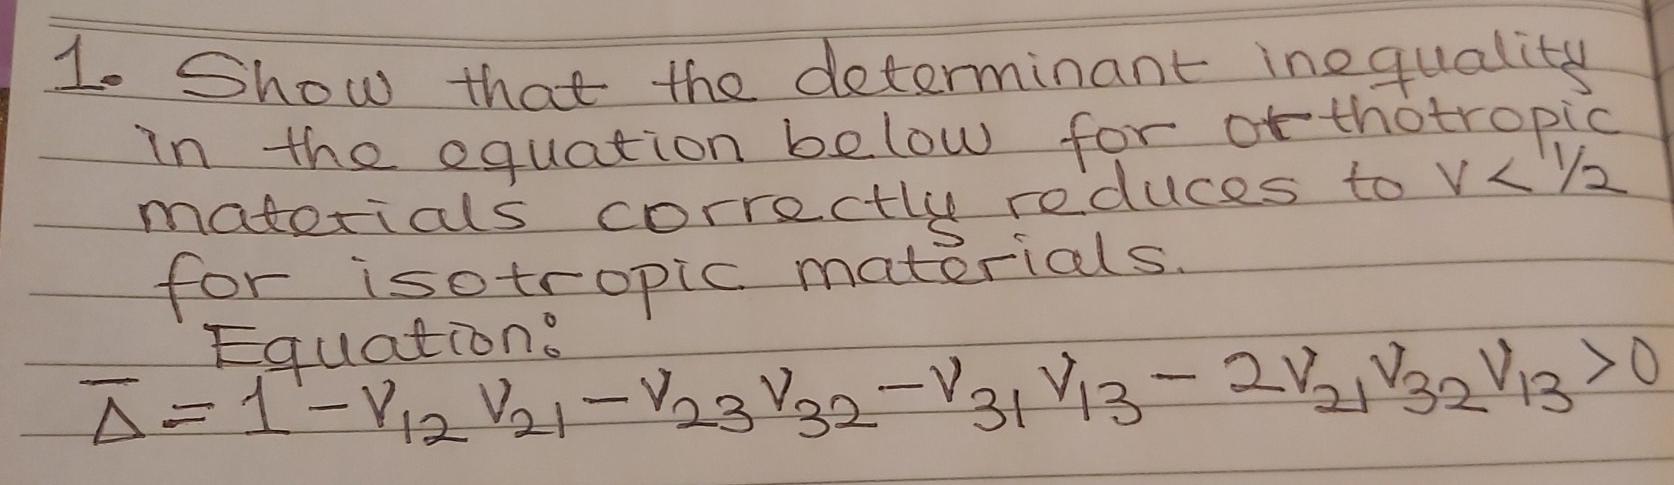 1. Show that the determinant inequality
in the equation below for orthotropic
materials correctly reduces to ν < 1/2
for isotropic materials.
Equation:
Δ̅ = 1 - ν₁₂ ν₂₁ - ν₂₃ ν₃₂ - ν₃₁ ν₁₃ - 2ν₂₁ ν₃₂ ν₁₃ > 0